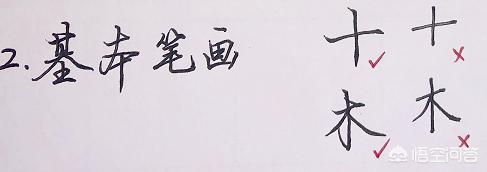 2.基本笔画
十✓ 十×
木✓ 木×
悟空问答